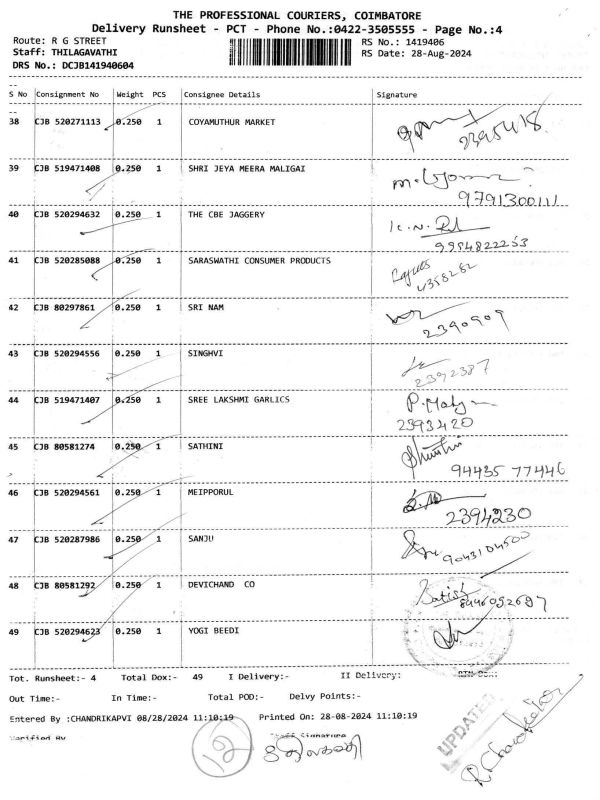 THE PROFESSIONAL COURIERS, COIMBATORE
Delivery Runsheet - PCT - Phone No.:0422-3505555 - Page No.:4
Route: R G STREET RS No.: 1419406
Staff: THILAGAVATHI RS Date: 28-Aug-2024
DRS No.: DCJB141940604
S No Consignment No Weight PCS Consignee Details Signature
38 CJB 520271113 0.250 1 COYAMUTHUR MARKET
2395418
39 CJB 519471408 0.250 1 SHRI JEYA MEERA MALIGAI
9791300111
40 CJB 520294632 0.250 1 THE CBE JAGGERY K.N.
41 CJB 520285088 0.250 1 SARASWATHI CONSUMER PRODUCTS
4358282
42 CJB 80297861 0.250 1 SRI NAM
2390909
43 CJB 520294556 0.250 1 SINGHVI
2392387
44 CJB 519471407 0.250 1 SREE LAKSHMI GARLICS P.
2393420
45 CJB 80581274 0.250 1 SATHINI
94435 77446
46 CJB 520294561 0.250 1 MEIPPORUL
2394230
47 CJB 520287986 0.250 1 SANJU
9043104500
48 CJB 80581292 0.250 1 DEVICHAND CO Satish
49 CJB 520294623 0.250 1 YOGI BEEDI
Tot. Runsheet:- 4 Total Dox:- 49 I Delivery:- II Delivery:
Out Time:- In Time:- Total POD:- Delvy Points:-
Entered By :CHANDRIKAPVI 08/28/2024 11:10:19 Printed On: 28-08-2024 11:10:19
Verified By Staff Signature
UPDATED